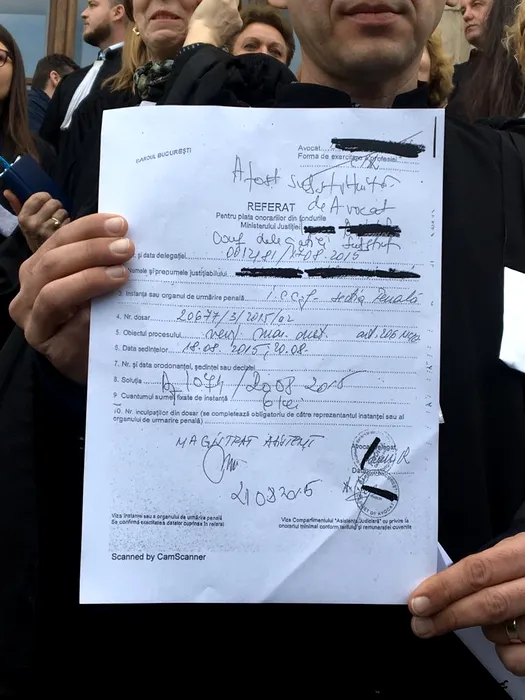 BAROUL BUCUREŞTI
Avocat
Forma de exercitare a profesiei
A fost substituitor
de Avocat
REFERAT
Pentru plata onorariilor din fondurile
Ministerului Justiţiei
substit
şi data delegaţiei 001281/17.08.2015
Numele şi prenumele justiţiabilului
3. Instanţa sau organul de urmărire penală I.C.C.J. - Secţia Penală
4. Nr. dosar 20677/3/2015/a2
5. Obiectul procesului
6. Data şedinţelor 18.08.2015, 20.08.
7. Nr. şi data ordonanţei, sentinţei sau deciziei
8. Soluţia 1074/20 08 2015
9. Cuantumul sumei fixate de instanţă 6 lei
10. Nr. inculpaţilor din dosar (se completează obligatoriu de către reprezentantul instanţei sau al
organului de urmărire penală)
MAGISTRAT ASISTENT
Avocat delegat
21 08 2015
Viza instanţei sau a organului de urmărire penală
Se confirmă exactitatea datelor cuprinse în referat
Viza Compartimentului "Asistenţa Judiciară" cu privire la
onorariul minimal conform
şi remuneraţiei cuvenite
Scanned by CamScanner